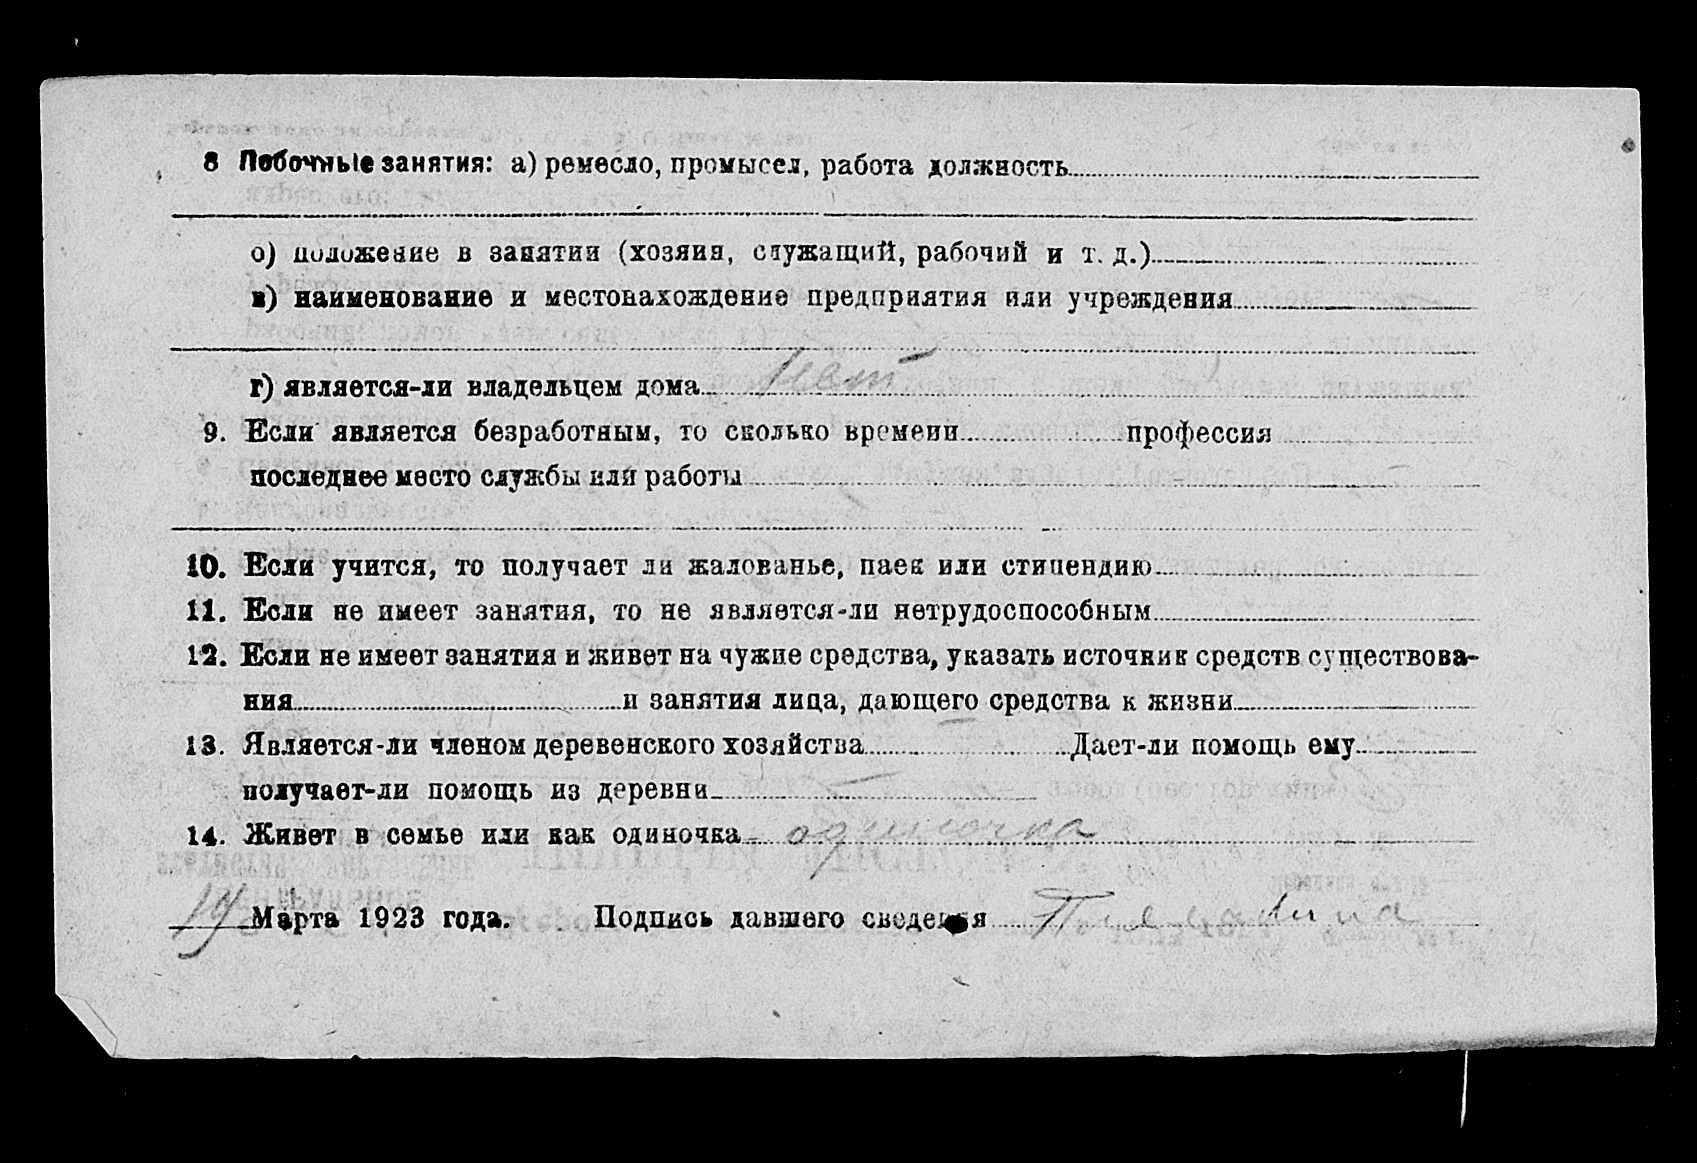 8 Побочные занятия: а) ремесло, промысел, работа должность
о) положение в занятии (хозяин, служащий, рабочий и т. д.)
в) наименование и местонахождение предприятия или учреждения
г) является-ли владельцем дома нет
9. Если является безработным, то сколько времени профессия
последнее место службы или работы
10. Если учится, то получает ли жалованье, паек или стипендию
11. Если не имеет занятия, то не является-ли нетрудоспособным
12. Если не имеет занятия и живет на чужие средства, указать источник средств существова-
ния и занятия лица, дающего средства к жизни
13. Является-ли членом деревенского хозяйства Дает-ли помощь ему
получает-ли помощь из деревни
14. Живет в семье или как одиночка одиночка
19 Марта 1923 года. Подпись давшего сведения